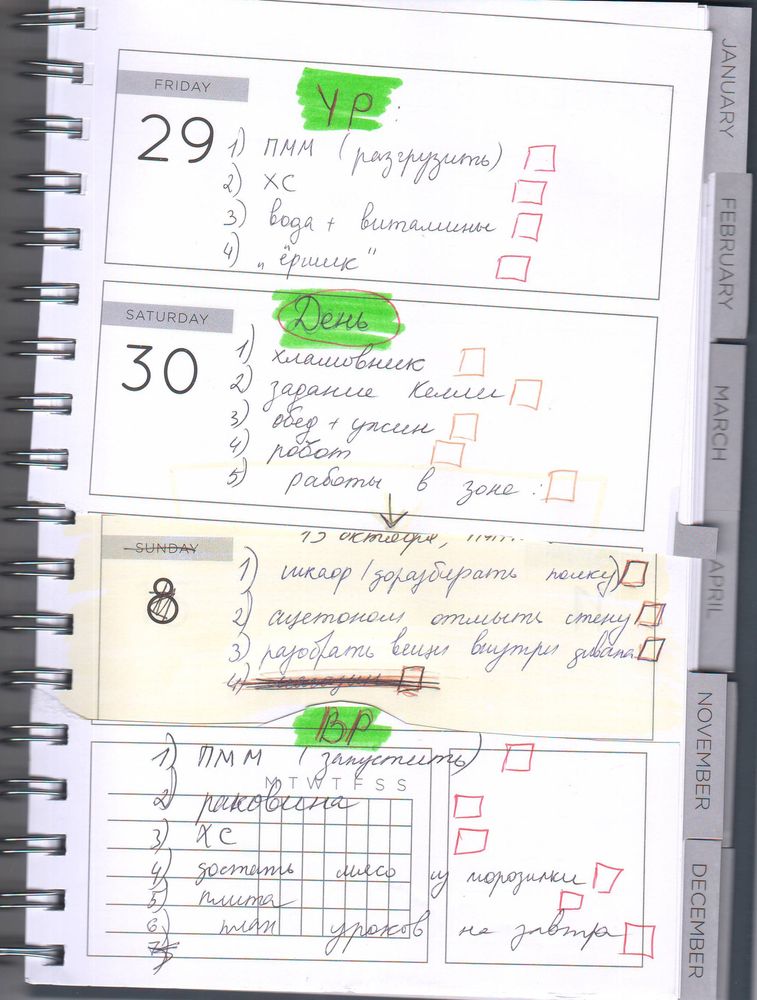 JANUARY
FEBRUARY
MARCH
APRIL
NOVEMBER
DECEMBER
FRIDAY
29
УР:
1) ПММ (разгрузить)
2) ХС
3) вода + витамины
4) „ёршик"
SATURDAY
30
День
1) хламовник
2) задание Келли
3) обед + ужин
4) робот
5) работы в зоне:
SUNDAY
октября,
1) шкаф (доразбирать полку)
2) ацетоном отмыть стену
3) разобрать вещи внутри дивана
4)
ВР
1) ПММ (запустить)
M T W T F S S
2) раковина
3) ХС
4) достать мясо из морозилки
5) плита
6) план уроков на завтра
7)